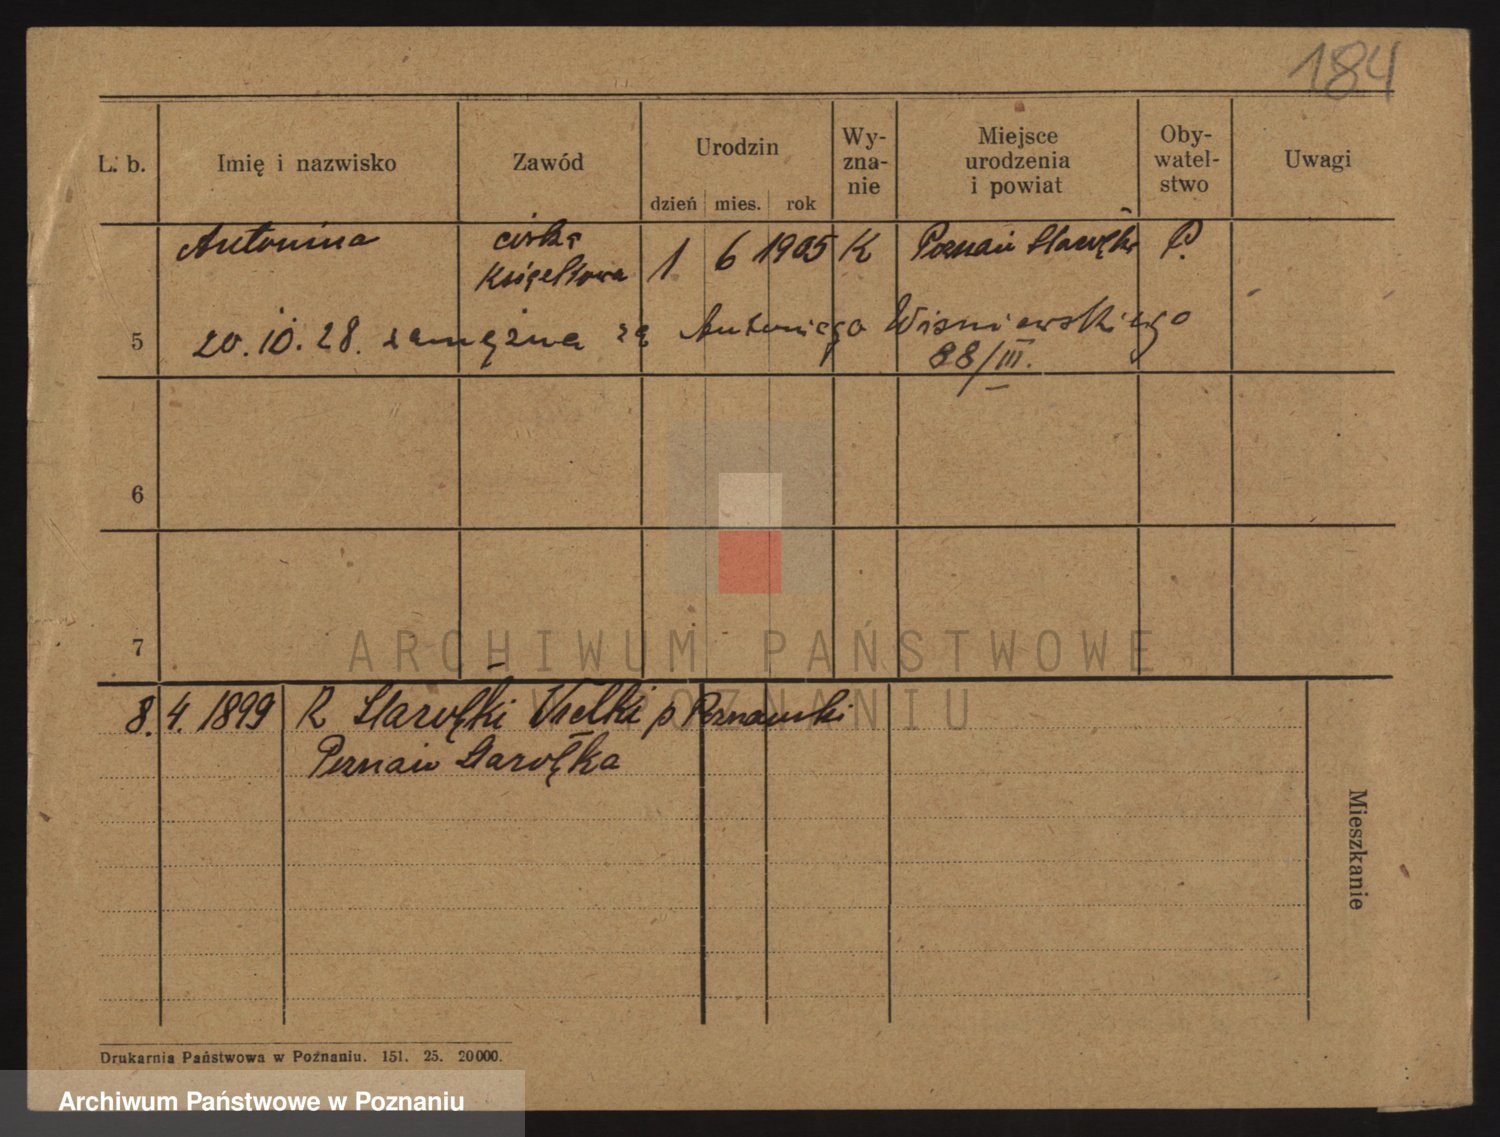 184
L. b. Imię i nazwisko Zawód Urodzin dzień mies. rok Wy-
zna-
nie Miejsce
urodzenia
i powiat Oby-
watel-
stwo Uwagi
Antonina córka 1 6 1905 K Poznań Starołęka P.
20. 10. 28. zamężna za Antoniego Wiśniewskiego
5
88/III.
6
7
8. 4. 1899 Starołęki Wielki p Poznański
Poznań Starołęka
Mieszkanie
Drukarnia Państwowa w Poznaniu. 151. 25. 20000.
ARCHIWUM PAŃSTWOWE
W POZNANIU
Archiwum Państwowe w Poznaniu